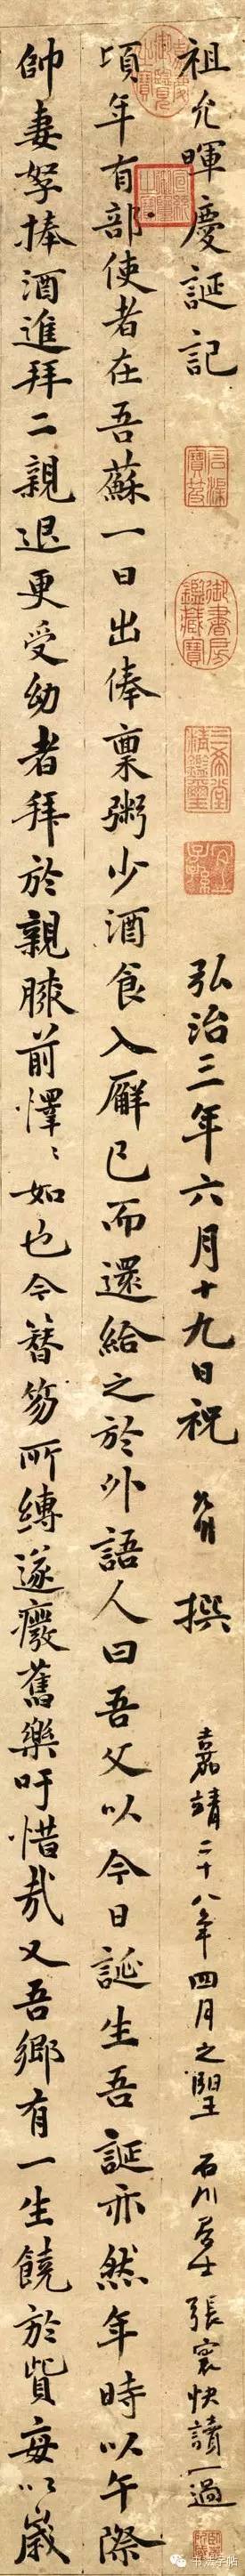 祖允暉慶誕記
弘治三年六月十九日祝 撰
嘉靖二十八年四月之望 石川居士張寰快讀一過
頃年有部使者在吾蘇一日出俸稟粥少酒食入廨已而還給之於外語人曰吾父以今日誕生吾誕亦然年時以午際
帥妻孥捧酒進拜二親退更受幼者拜於親膝前懌〻如也今簪笏所縛遂癈舊樂吁惜哉又吾鄉有一生饒於貲每以歲
石渠寶笈
御書房鑑藏寶
三希堂精鑑璽
宜子孫
书法字帖